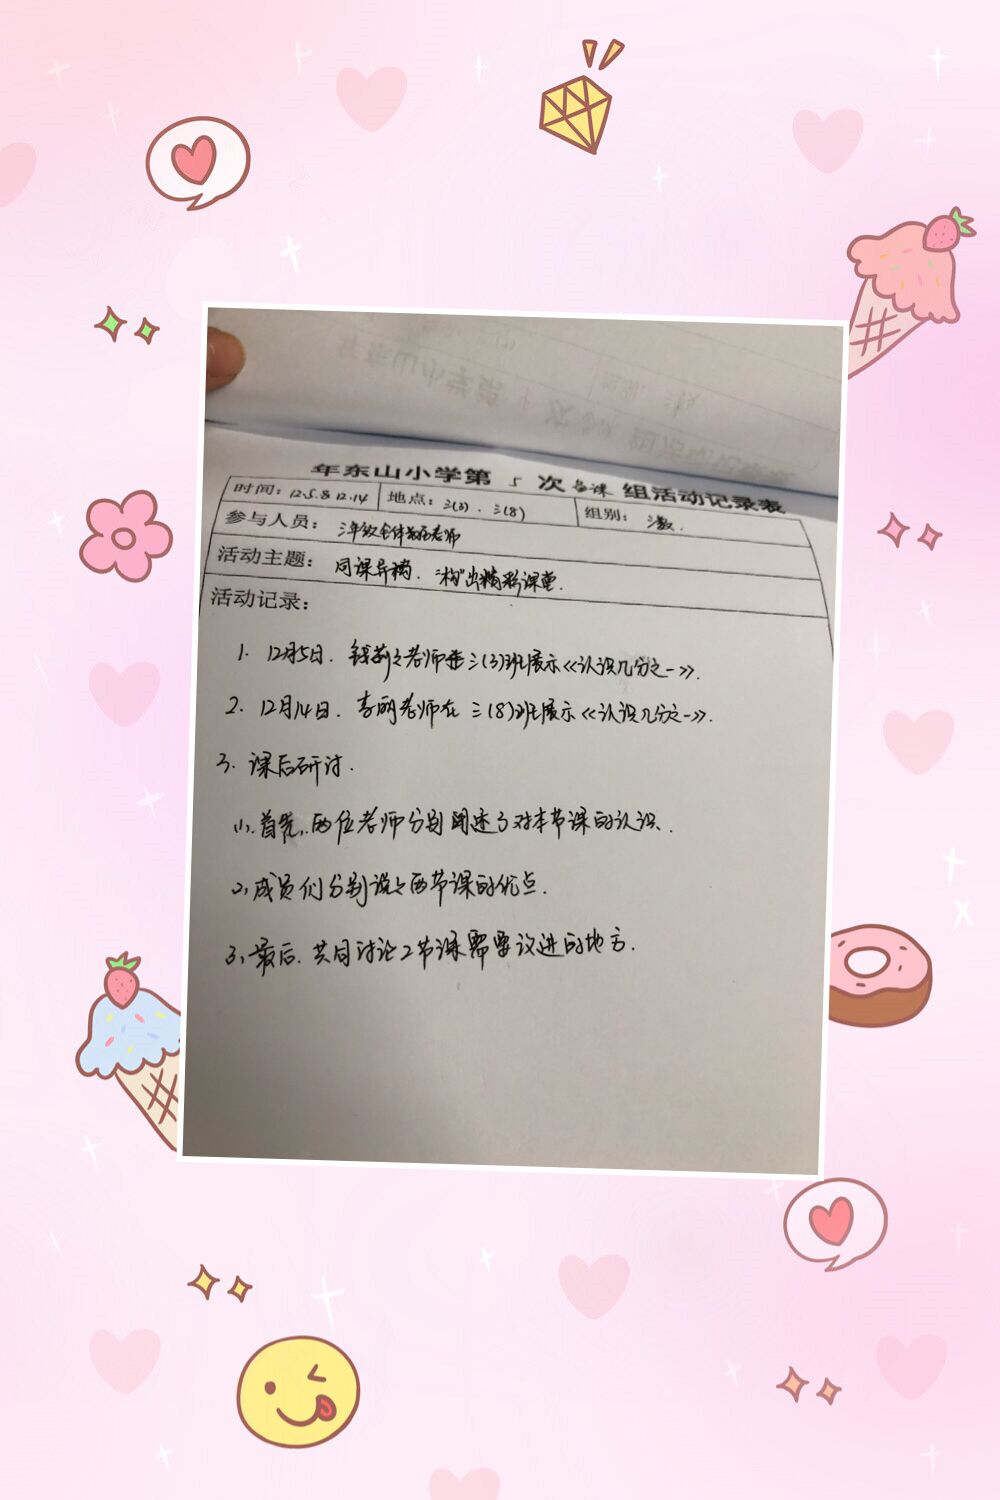 年东山小学第 5 次备课组活动记录表
时间：12.5.8 12.14 地点：三(3)．三(8) 组别：三数．
参与人员：三年级全体数学老师
活动主题：同课异构．"构"出精彩课堂．
活动记录：
1. 12月5日．老师在三(3)班展示《认识几分之一》．
2. 12月14日．李丽老师在三(8)班展示《认识几分之一》．
3. 课后研讨．
(1).首先，两位老师分别阐述了对本节课的认识．
2、成员们分别说了两节课的优点．
3、最后．共同讨论2节课需要改进的地方．